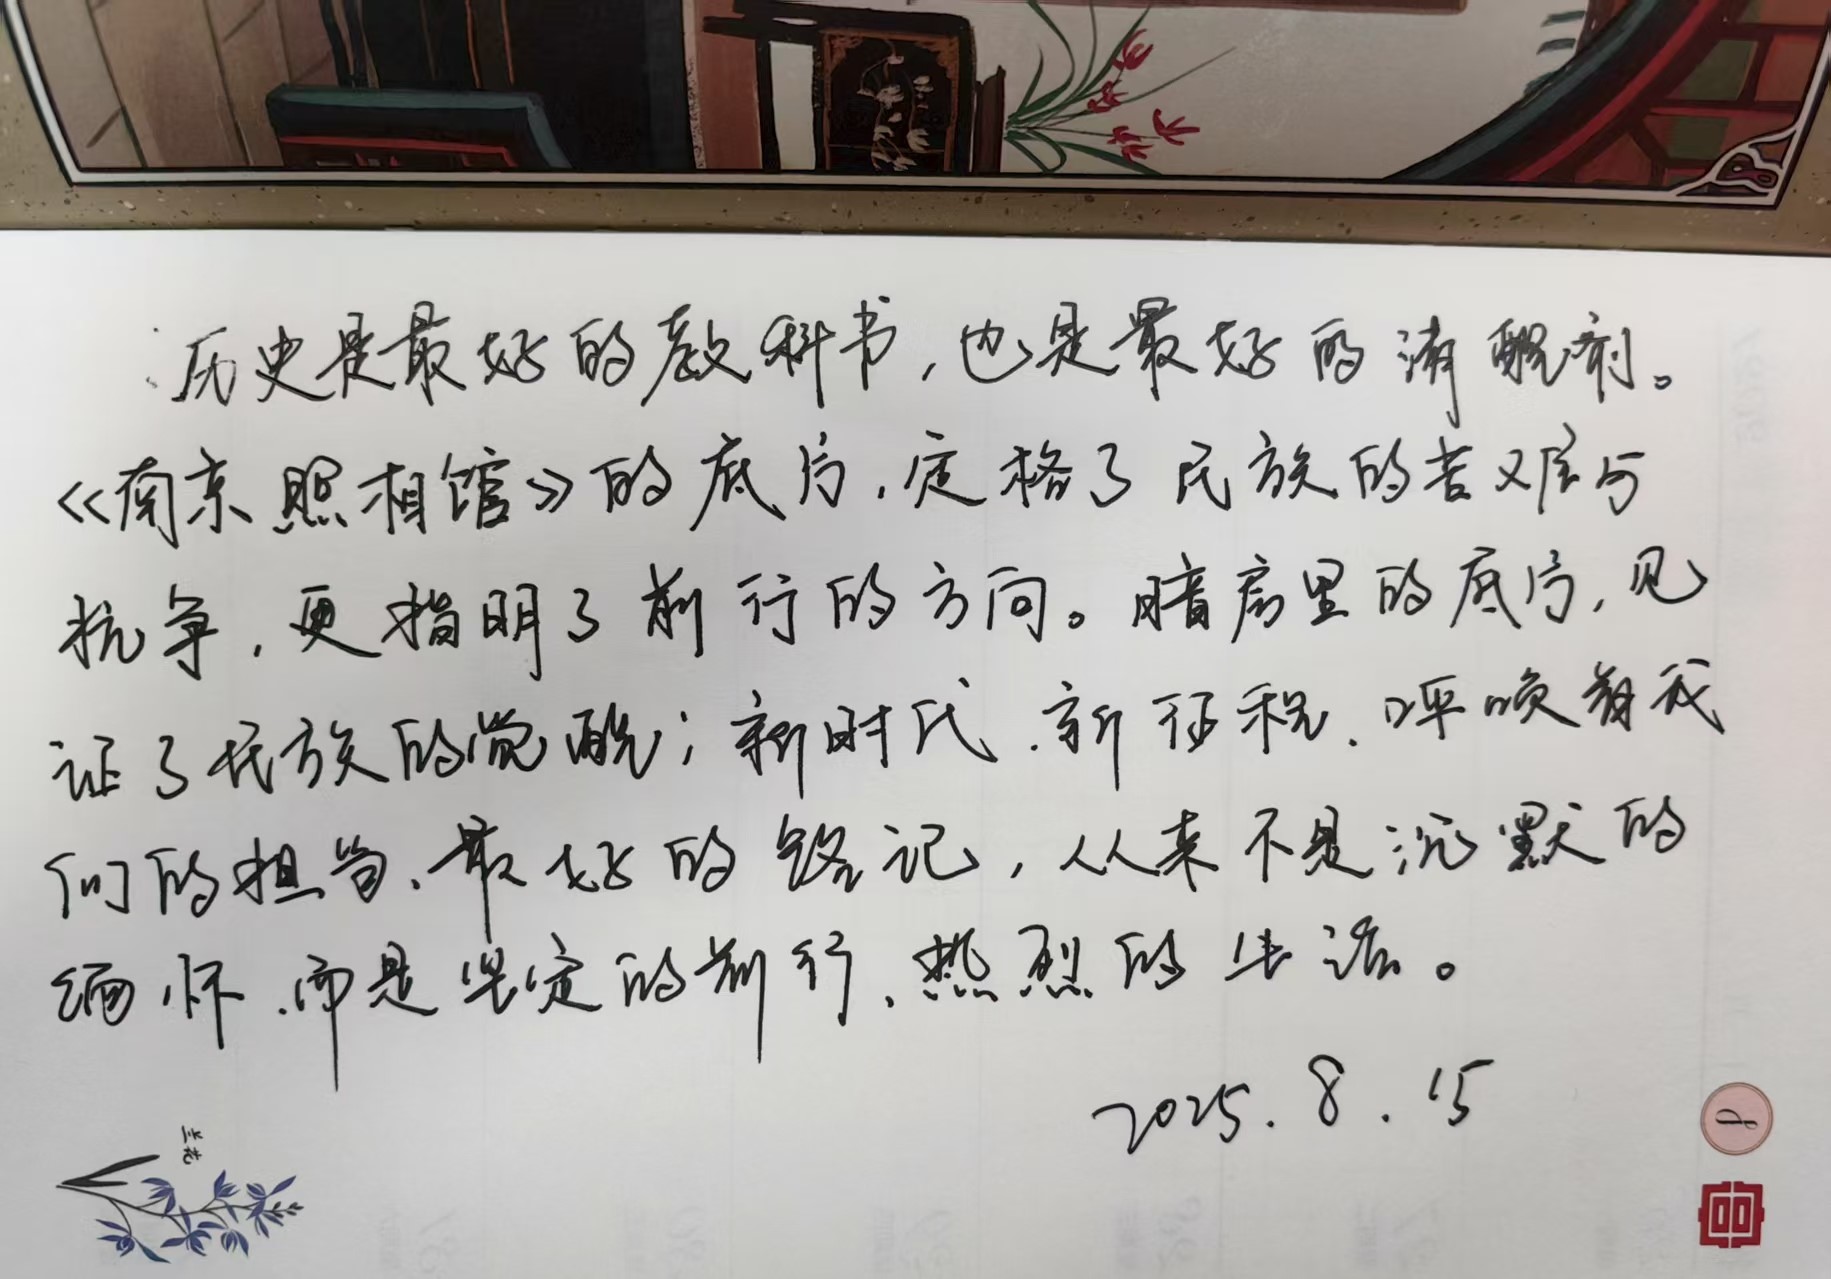 历史是最好的教科书，也是最好的清醒剂。
《南京照相馆》的底片，定格了民族的苦难与
抗争，更指明了前行的方向。暗房里的底片，见
证了民族的觉醒；新时代、新征程，呼唤着我
们的担当，最好的铭记，从来不是沉默的
缅怀，而是坚定的前行，热烈的生活。
2025.8.15
兰花